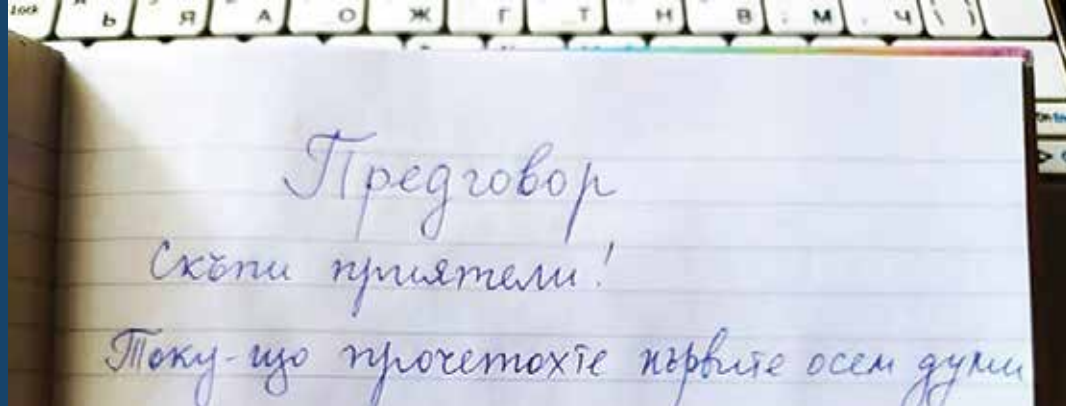 Lock Ь Я А О Ж Г Т Н В ; М . Ч \ |
Предговор
Скъпи приятели!
Току-що прочетохте първите осем думи